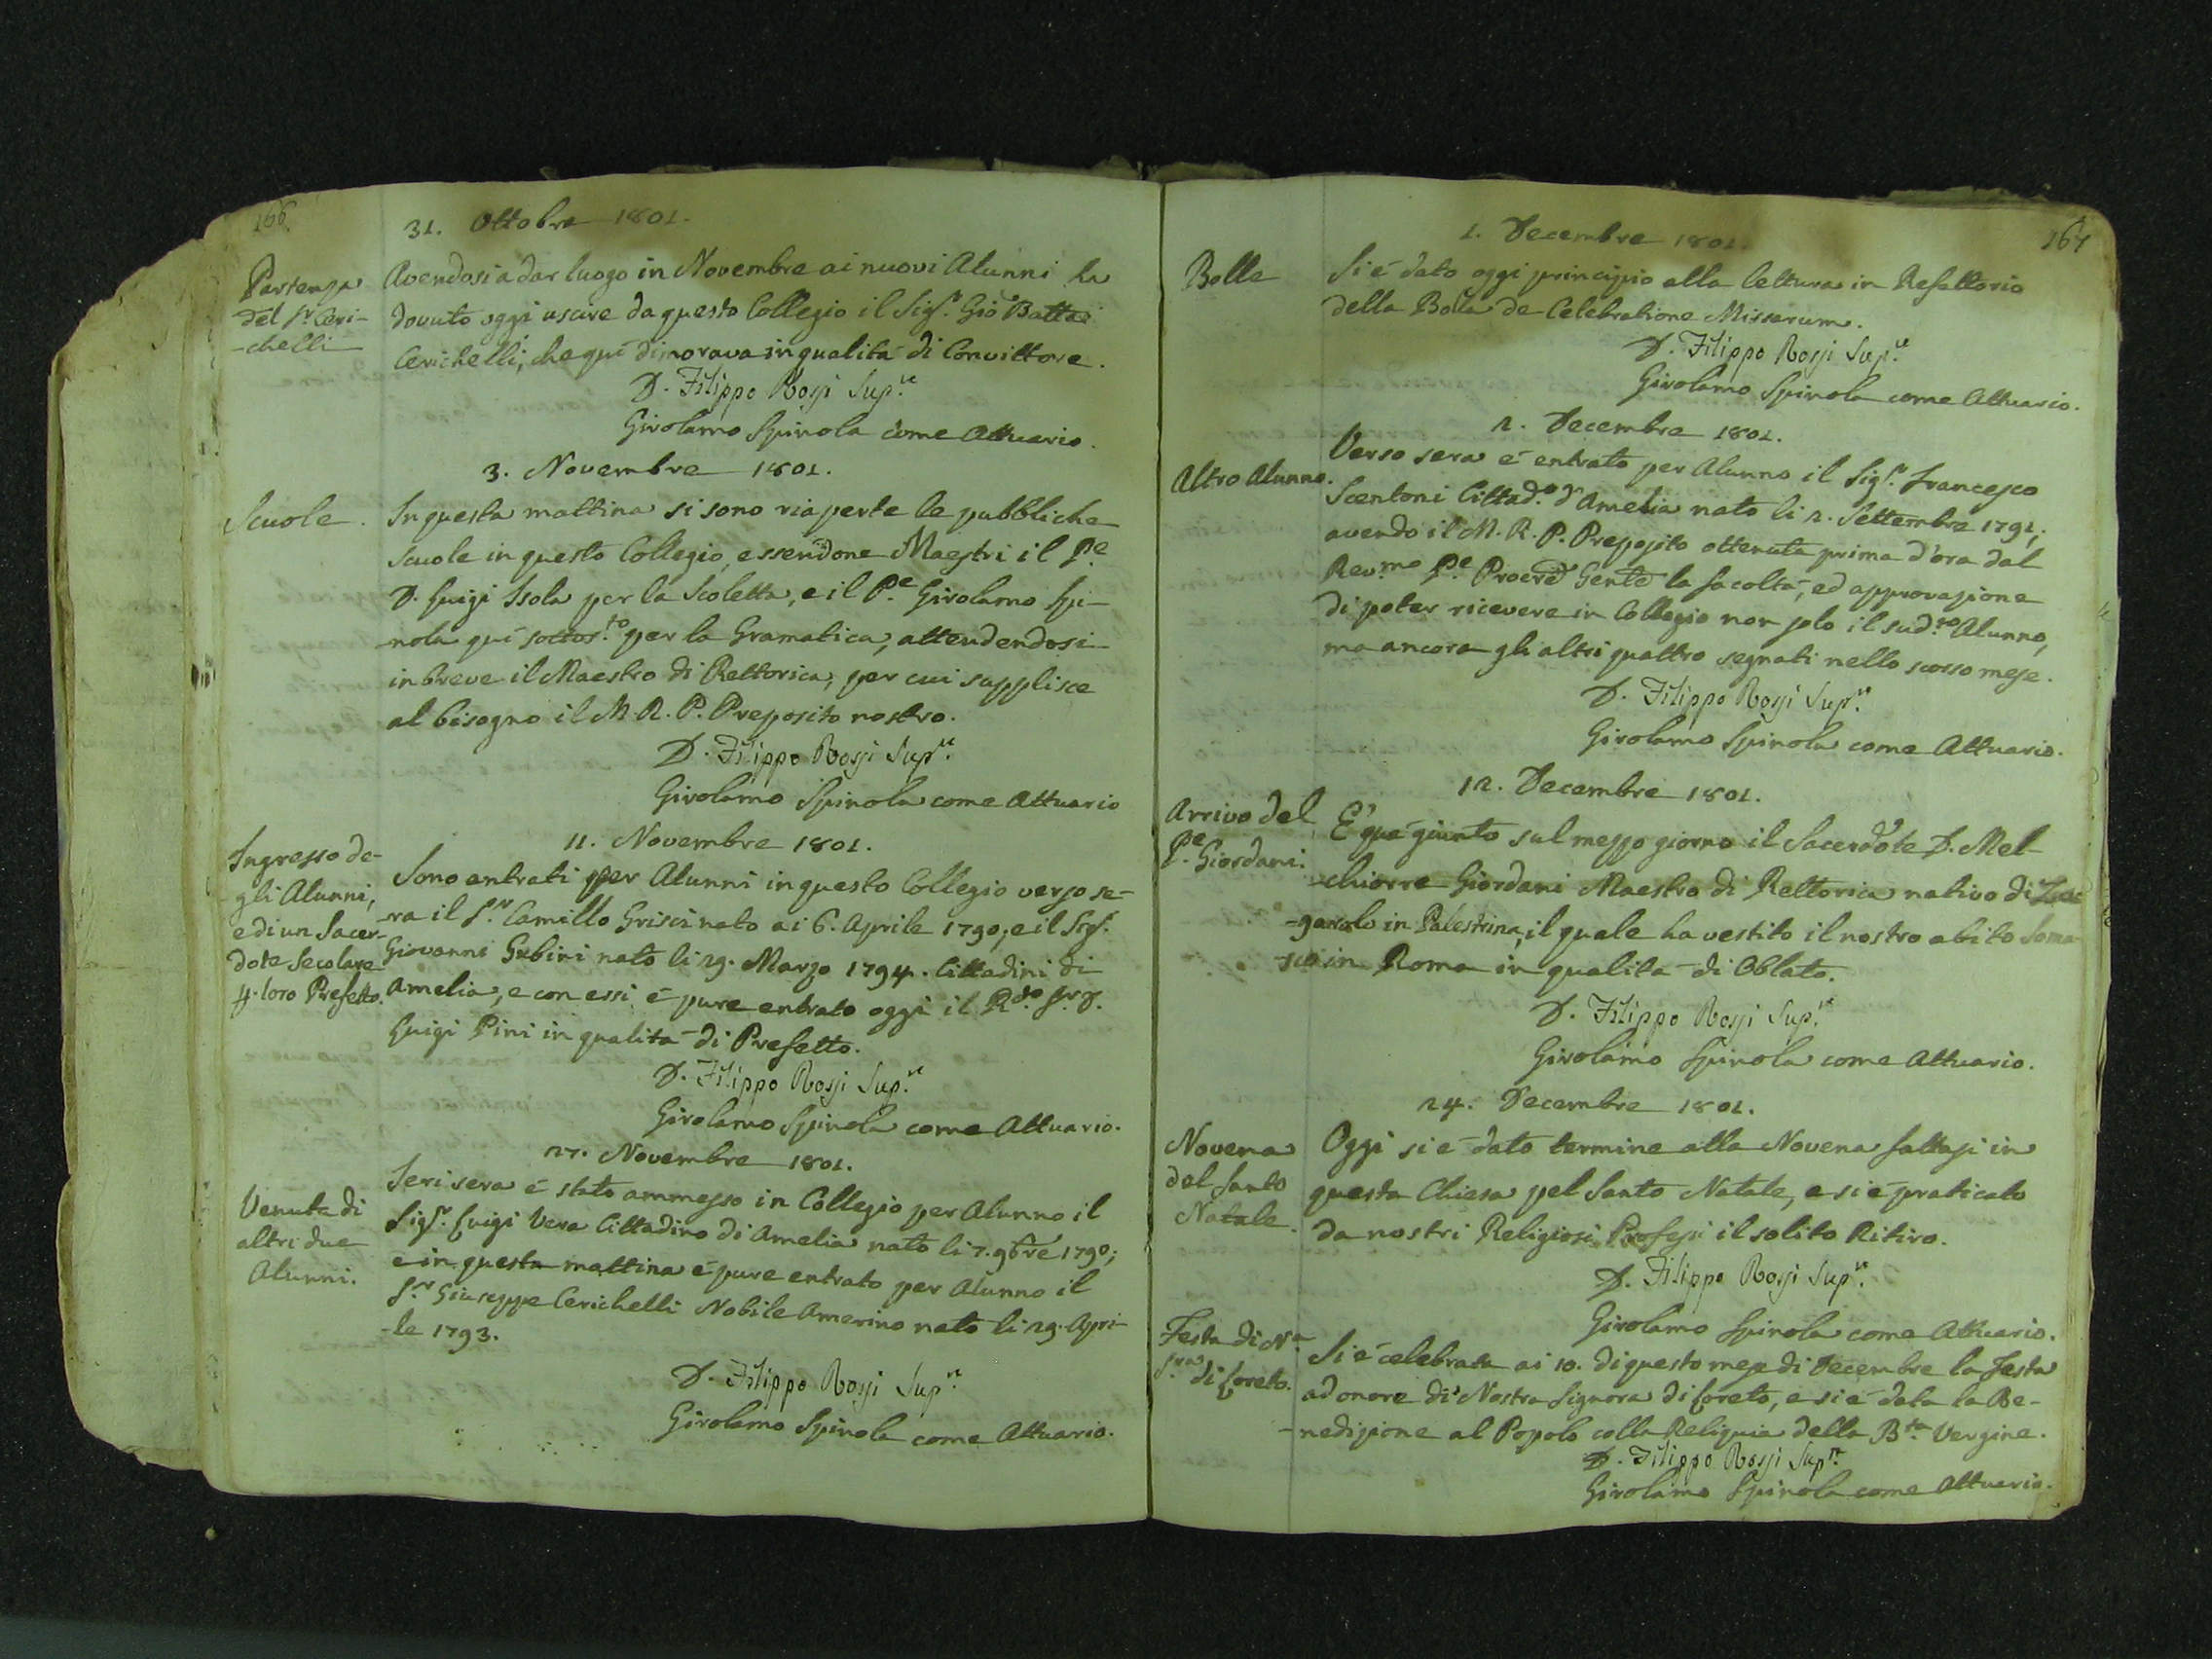 166.
31. Ottobre 1801.
Partenza
del Sr. Ceri-
-chelli
Avendosi a dar luogo in Novembre ai nuovi Alunni ha
dovuto oggi uscire da questo Collegio il Sigr. Gio Batta
Cerichelli, che quì dimorava in qualità di Convittore.
D. Filippo Rossi Supre.
Girolamo Spinola come Attuario.
3. Novembre 1801.
Scuole.
In questa mattina si sono riaperte le pubbliche
scuole in questo Collegio, essendone Maestri il Pe.
D. Luigi Isola per la Scoletta, e il Pe. Girolamo Spi-
-nola quì sottosto. per la Gramatica, attendendosi
in breve il Maestro di Rettorica, per cui supplisce
al bisogno il M. R. P. Preposito nostro.
D. Filippo Rossi Supre.
Girolamo Spinola come Attuario
11. Novembre 1801.
Ingresso de-
-gli Alunni,
e di un Sacer-
dote Secolare
p. loro Prefetto.
Sono entrati per Alunni in questo Collegio verso se-
-ra il Sr. Camillo Grisci nato ai 6. Aprile 1790; e il Sigr.
Giovanni Gubini nato li 29. Marzo 1794. Cittadini di
Amelia, e con essi è pure entrato oggi il Rdo. Sr. D.
Luigi Pini in qualità di Prefetto.
D. Filippo Rossi Supre.
Girolamo Spinola come Attuario.
27. Novembre 1801.
Venuta di
altri due
Alunni.
Ieri sera è stato ammesso in Collegio per Alunno il
Sigr. Luigi Vera Cittadino di Amelia nato li 7. 9bre 1790;
e in questa mattina è pure entrato per Alunno il
Sr. Giuseppe Cerichelli Nobile Amerino nato li 29. Apri-
-le 1793.
D. Filippo Rossi Supre.
Girolamo Spinola come Attuario.
167
1. Decembre 1801.
Bolla
Si è dato oggi principio alla lettura in Refettorio
della Bolla de Celebratione Missarum.
D. Filippo Rossi Supre.
Girolamo Spinola come Attuario.
2. Decembre 1801.
Altro Alunno.
Verso sera è entrato per Alunno il Sigr. Francesco
Scentoni Cittado. d'Amelia nato li 2. Settembre 1791;
avendo il M. R. P. Preposito ottenuta prima d'ora dal
Revmo. Pe. Procre Genle la facoltà, ed approvazione
di poter ricevere in Collegio non solo il sudto. Alunno,
ma ancora gli altri quattro segnati nello scorso mese.
D. Filippo Rossi Supre.
Girolamo Spinola come Attuario.
12. Decembre 1801.
Arrivo del
Pe. Giordani.
E' quà giunto sul mezzo giorno il Sacerdote D. Mel-
-chiorre Giordani Maestro di Rettorica nativo di Zac-
-garolo in Palestrina, il quale ha vestito il nostro abito Soma-
-sco in Roma in qualità di Oblato.
D. Filippo Rossi Supre.
Girolamo Spinola come Attuario.
24. Decembre 1801.
Novena
del Santo
Natale.
Oggi si è dato termine alla Novena fattasi in
questa Chiesa pel Santo Natale, e si è praticato
da nostri Religiosi Professi il solito Ritiro.
D. Filippo Rossi Supre.
Girolamo Spinola come Attuario.
Festa di Na.
Sra. di Loreto.
Si è celebrata ai 10. di questo mese di Decembre la Festa
ad onore di Nostra Signora di Loreto, e si è data la Be-
-nedizione al Popolo colla Reliquia della Bta. Vergine.
D. Filippo Rossi Supre.
Girolamo Spinola come Attuario.